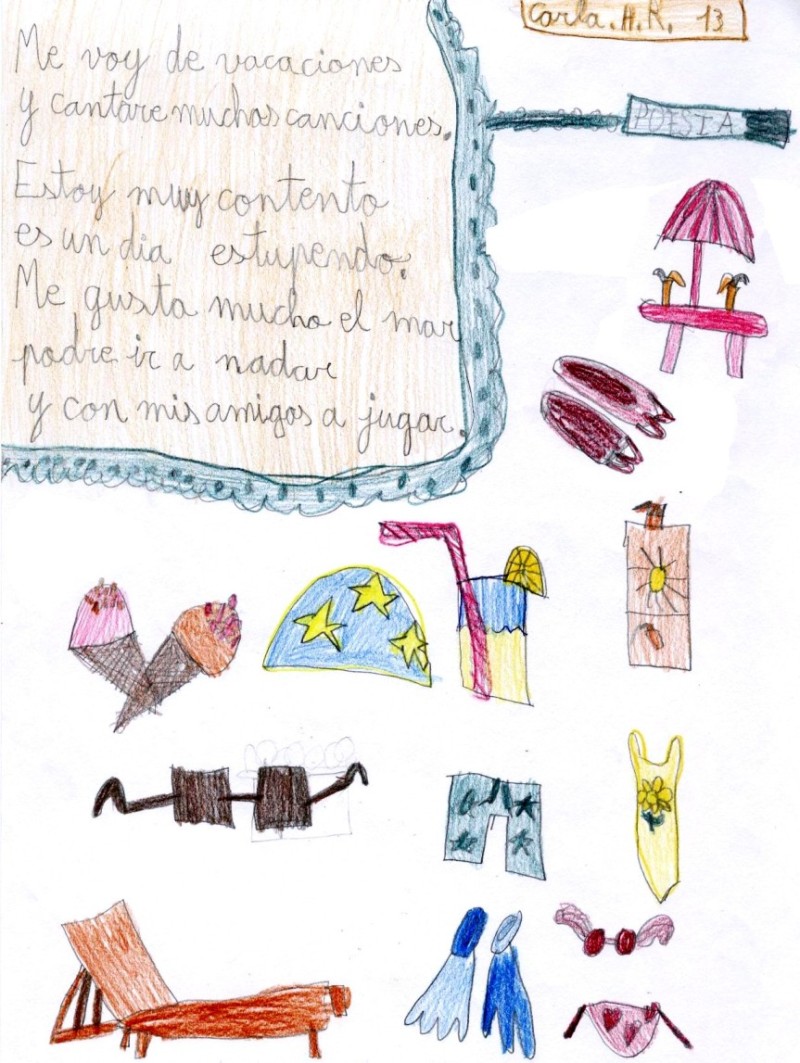 Carla. H. R. 13
Me voy de vacaciones
y cantare muchas canciones.
POESIA
Estoy muy contento
es un dia estupendo.
Me gusta mucho el mar
podre ir a nadar
y con mis amigos a jugar.